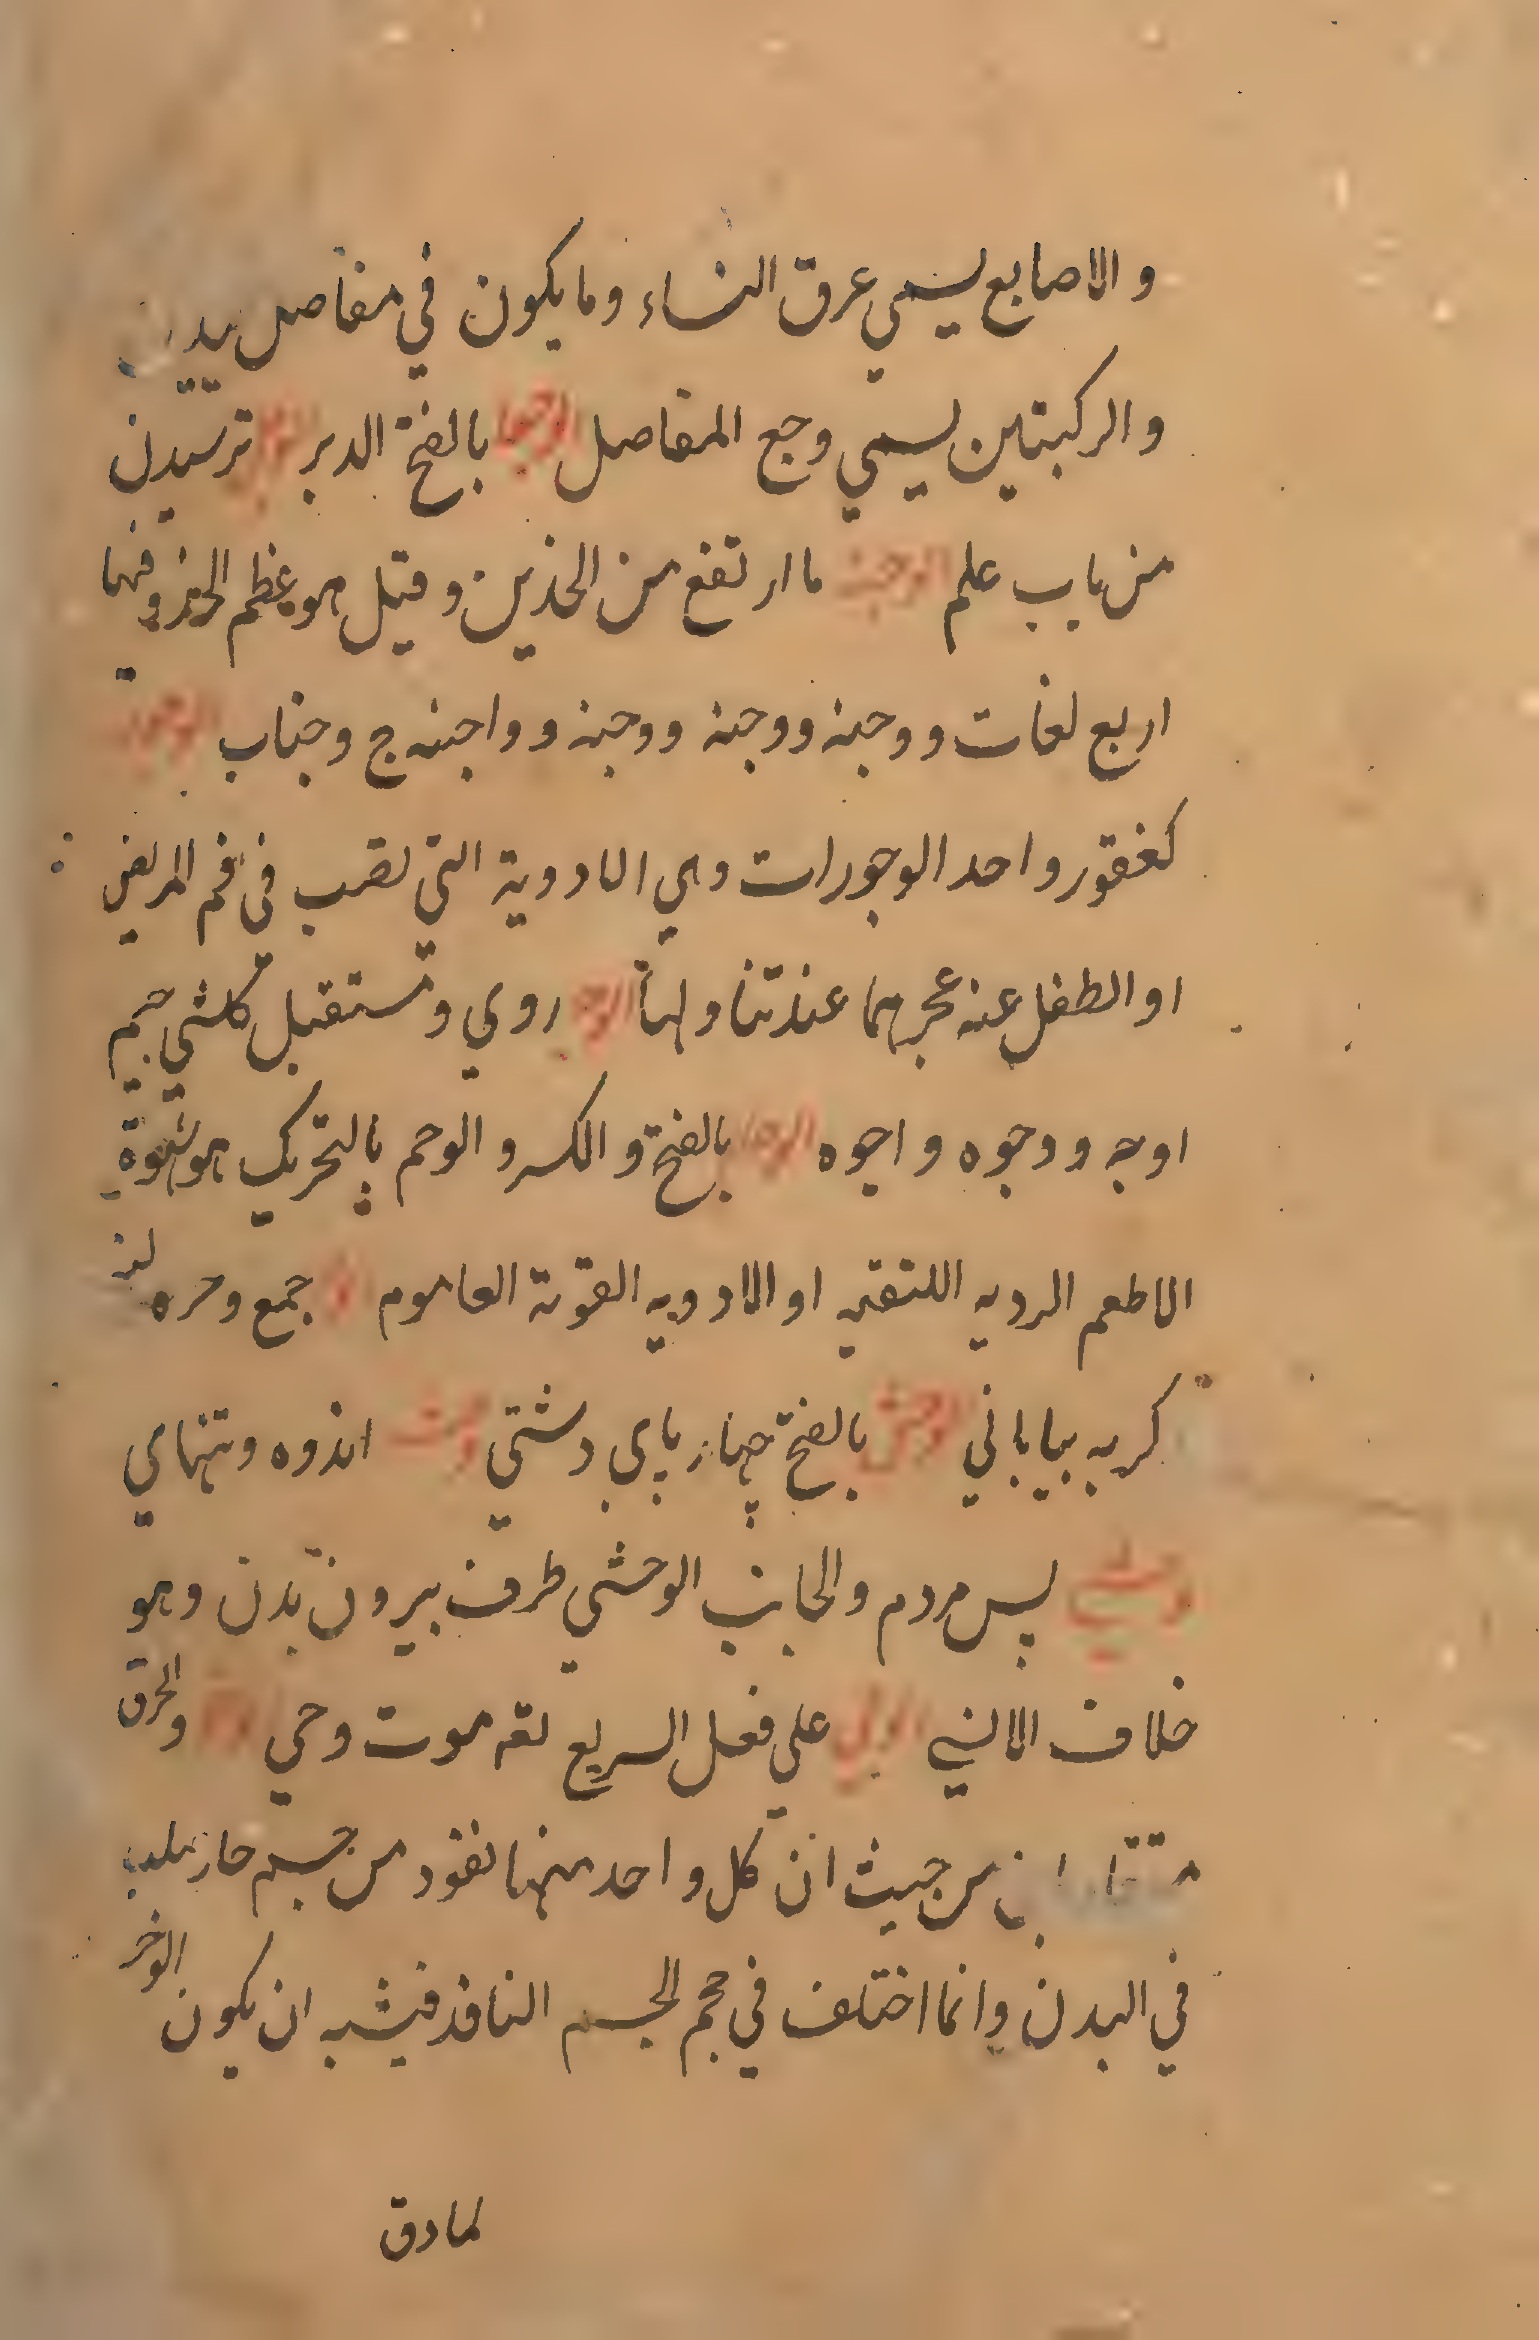 والاصابع يسمي عرق النساء وما يكون في مفاصل
والركبتين يسمي وجع المفاصل بالفتح الدبر ترسيدن
من باب علم الوجنة ما ارتفع من الخدين وقيل هو عظم الخد وفيها
اربع لغات ووجنه ووجنه ووجنه وواجنه ج وجناب
كغفور واحد الوجورات وهي الادوية التي تصب في فم المريض
او الطفل عنه عجرهما عند تناولها روي ومستقبل كلشي جيم
اوجه ووجوه واجوه بالفتح والكسر والوحم بالتحريك هو شهوة
الاطعم الرديه او الادويه القوية جمع وحره
كربه بياباني وحش بالفتح چهار پاي دشتي وحشت اندوه وتنهاي
وحشي پس مردم والجانب الوحشي طرف بيرون بدن وهو
خلاف الانسي علي فعل السريع يقه موت وحي والخرق
من حيث ان كل واحد منهما نفود من جسم حار
في البدن وانما اختلف في حجم الجسم النافذ فيشبه ان يكون الوخز
لمادق